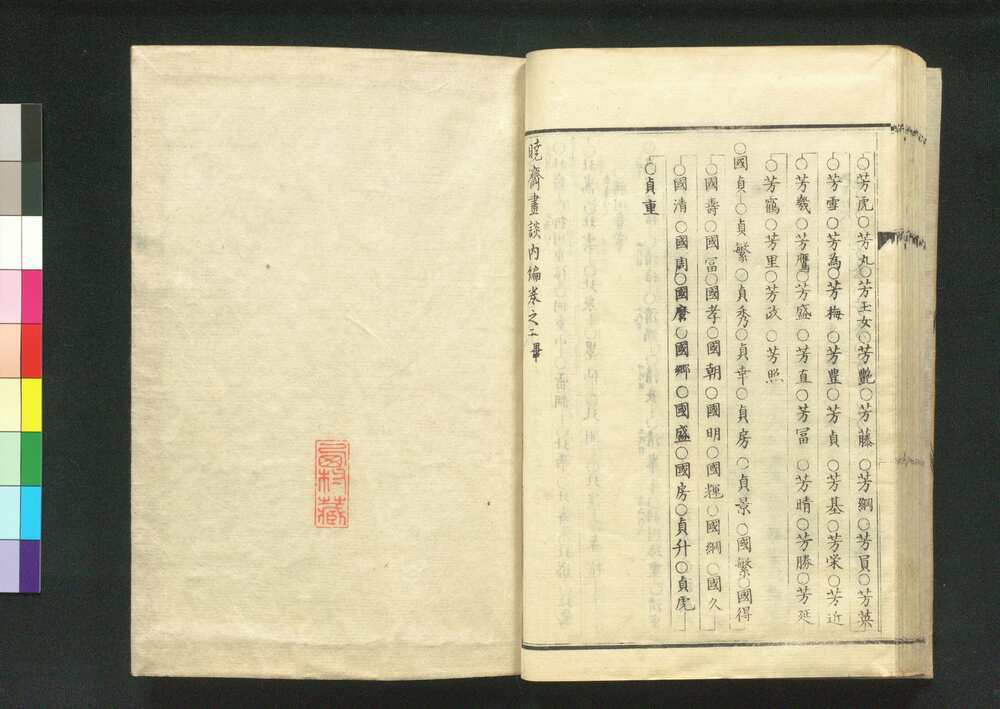 ○芳虎○芳丸○芳玉女○芳艶○芳藤○芳綱○芳員○芳菜
○芳雪○芳為○芳梅○芳豊○芳貞○芳基○芳栄○芳近
○芳幾○芳鷹○芳盛○芳直○芳冨○芳晴○芳勝○芳延
○芳鶴○芳里○芳政○芳照
○國貞○貞繁○貞秀○貞幸○貞房○貞景○國繁○國得
○國壽○國冨○國孝○國朝○國明○國輝○國綱○國久
○國清○國周○國麿○國郷○國盛○國房○貞升○貞虎
○貞重
暁齋畫談内編巻之二畢